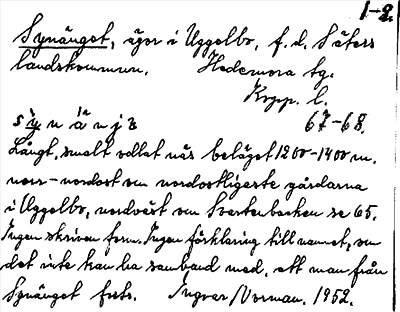 1-2.
Synänget, ägor i Uggelbo, f. d. Säters
landskommun. Hedemora tg.
Kopp. l.
67-68.
Långt, smalt odlat näs beläget 1200-1400 m.
norr-nordost om nordostligaste gårdarna
i Uggelbo, nordväst om Svartenbacken se 65.
Ingen skriven form. Ingen förklaring till namnet, om
det inte kan ha samband med, att man från
Synänget Ingvar Norman. 1952.